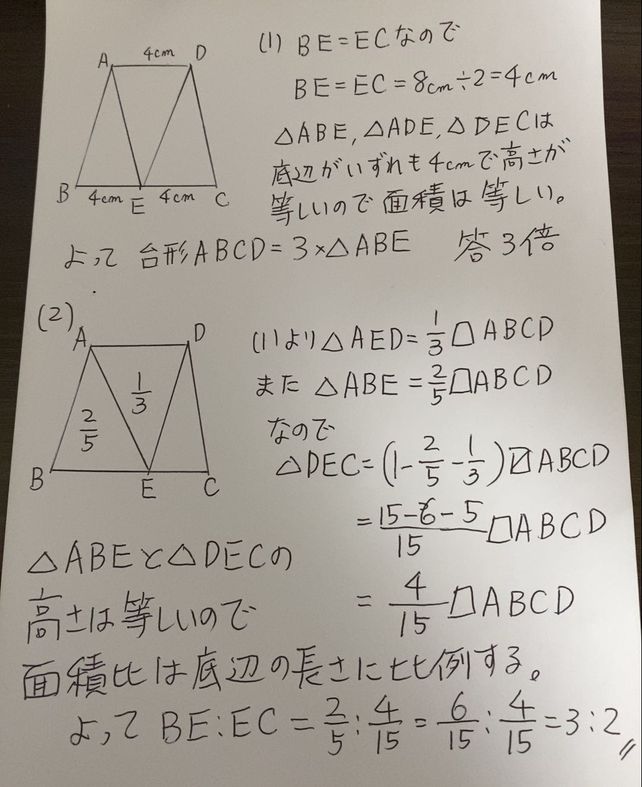 (1) BE=ECなので
BE=EC=8cm÷2=4cm
△ABE,△ADE,△DECは
底辺がいずれも4cmで高さが
等しいので面積は等しい。
よって 台形ABCD=3×△ABE 答3倍
A 4cm D
B 4cm E 4cm C
(2)
A D
1/3
2/5
B E C
(1)より△AED=1/3□ABCD
また △ABE=2/5□ABCD
なので
△DEC=(1-2/5-1/3)□ABCD
=15-6-5/15□ABCD
=4/15□ABCD
△ABEと△DECの
高さは等しいので
面積比は底辺の長さに比例する。
よって BE:EC=2/5:4/15=6/15:4/15=3:2